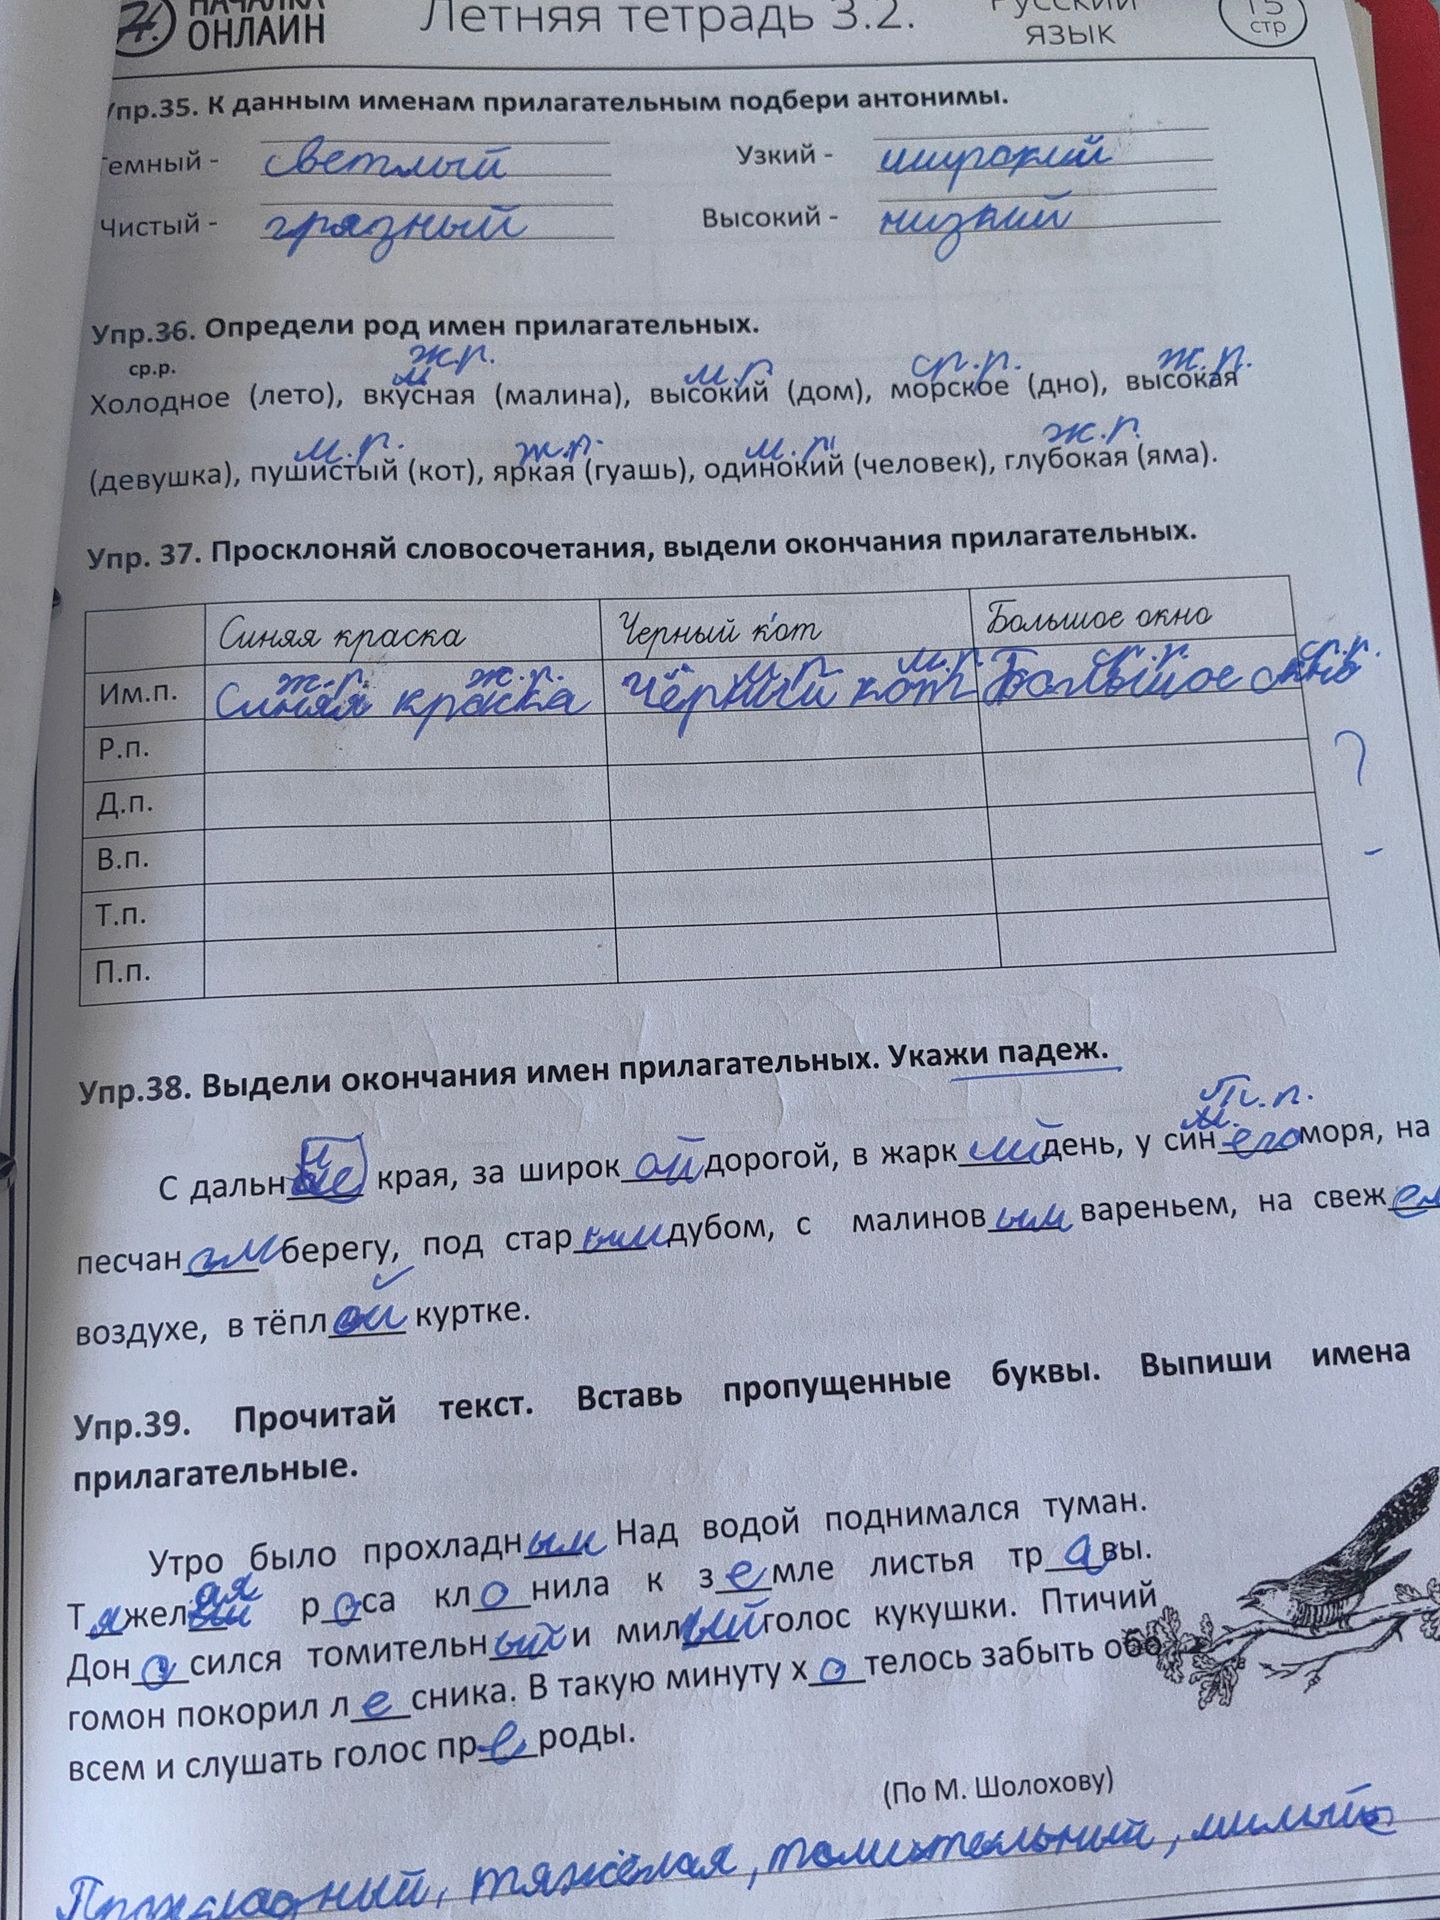 НАЧАЛКА ОНЛАЙН Летняя тетрадь 3.2. Русский язык 15 стр
Упр.35. К данным именам прилагательным подбери антонимы.
Темный - светлый Узкий - широкий
Чистый - грязный Высокий - низкий
Упр.36. Определи род имен прилагательных.
ср.р. ж.р. м.р. ср.р. ж.р.
Холодное (лето), вкусная (малина), высокий (дом), морское (дно), высокая
м.р. ж.р. м.р. ж.р.
(девушка), пушистый (кот), яркая (гуашь), одинокий (человек), глубокая (яма).
Упр. 37. Просклоняй словосочетания, выдели окончания прилагательных.
Синяя краска Черный кот Большое окно
ж.р. ж.р. м.р. м.р. ср.р. ср.р.
Им.п. Синяя краска Чёрный кот Большое окно
Р.п. ?
Д.п.
В.п.
Т.п.
П.п.
Упр.38. Выдели окончания имен прилагательных. Укажи падеж.
С дальн края, за широкой дорогой, в жаркий день, у синего моря, на
песчаном берегу, под старым дубом, с малиновым вареньем, на свежем
воздухе, в тёплой куртке.
Упр.39. Прочитай текст. Вставь пропущенные буквы. Выпиши имена
прилагательные.
Утро было прохладным Над водой поднимался туман.
Тяжелая роса клонила к земле листья травы.
Доносился томительных и милый голос кукушки. Птичий
гомон покорил лесника. В такую минуту хотелось забыть обо
всем и слушать голос прероды.
(По М. Шолохову)
Прохладный, тяжёлая, томительный, милый